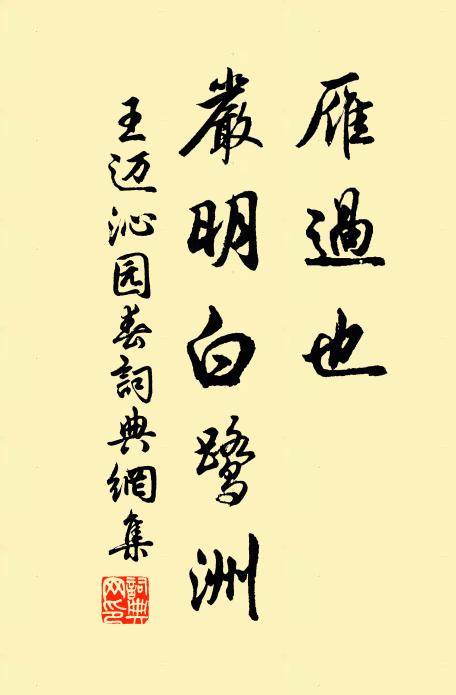 雁過也
嚴明白鷺洲
王迈沁园春詞典網集
詞典网印